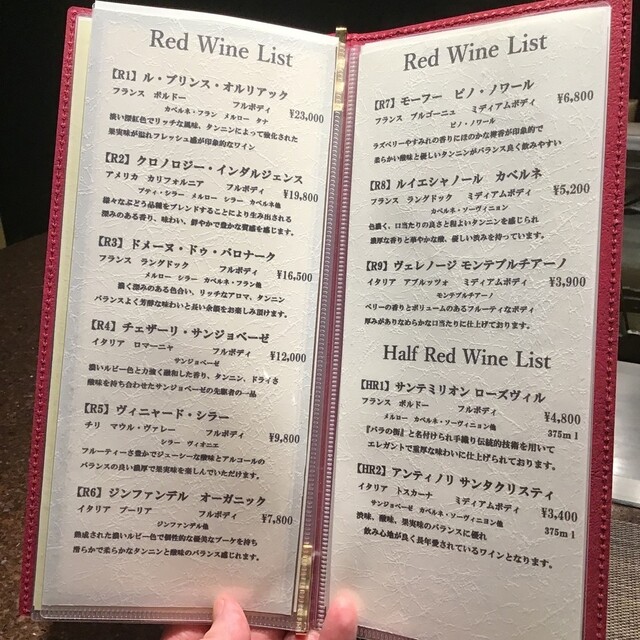 Red Wine List
【R1】ル・プリンス・オルリアック
フランス ボルドー フルボディ ¥23,000
カベルネ・フラン メルロー タナ
濃い深紅色でリッチな風味、タンニンによって強化された
果実味が溢れフレッシュ感が印象的なワイン
【R2】クロノロジー・インダルジェンス
アメリカ カリフォルニア フルボディ ¥19,800
プティ・シラー メルロー シラー カベルネ他
様々なぶどう品種をブレンドすることにより生み出される
深みのある香り、味わい、鮮やかで豊かな質感を感じます。
【R3】ドメーヌ・ドゥ・バロナーク
フランス ラングドック フルボディ ¥16,500
メルロー シラー カベルネ・フラン他
濃く深みのある色合い、リッチなアロマ、タンニン
バランスよく芳醇な味わいと長い余韻をお楽しみ頂けます。
【R4】チェザーリ・サンジョベーゼ
イタリア ロマーニャ フルボディ ¥12,000
サンジョベーゼ
濃いルビー色と力強く調和した香り、タンニン、ドライさ
酸味を持ち合わせたサンジョベーゼの先駆者の一品
【R5】ヴィニャード・シラー
チリ マウル・ヴァレー フルボディ ¥9,800
シラー ヴィオニエ
フルーティーさ豊かでジューシーな酸味とアルコールの
バランスの良い濃厚で果実味を楽しんでいただけます。
【R6】ジンファンデル オーガニック
イタリア プーリア フルボディ ¥7,800
ジンファンデル他
熟成された濃いルビー色で個性的な優美なブーケを持ち
滑らかで柔らかなタンニンと酸味のバランス感じれます。
Red Wine List
【R7】モーフー ピノ・ノワール
フランス ブルゴーニュ ミディアムボディ ¥6,800
ピノ・ノワール
ラズベリーやすみれの香りにほのかな樽香が印象的で
柔らかい酸味と優しいタンニンがバランス良く飲みやすい
【R8】ルイエシャノール カベルネ
フランス ラングドック ミディアムボディ ¥5,200
カベルネ・ソーヴィニョン
色濃く、口当たりの良さと程よいタンニンを感じられ
濃厚な香りと華やかな酸、優しい渋みを持っています。
【R9】ヴェレノージ モンテプルチアーノ
イタリア アブルッツォ ミディアムボディ ¥3,900
モンテプルチアーノ
ベリーの香りとボリュームのあるフルーティなボディ
厚みがありなめらかな口当たりに仕上げております。
Half Red Wine List
【HR1】サンテミリオン ローズヴィル
フランス ボルドー フルボディ ¥4,800
メルロー カベルネ・ソーヴィニョン他 375ml
『バラの街』と名付けられ手織り伝統的技術を用いて
エレガントで重厚な味わいに仕上げられております。
【HR2】アンティノリ サンタクリスティ
イタリア トスカーナ ミディアムボディ ¥3,400
サンジョベーゼ カベルネ・ソーヴィニョン他 375ml
渋味、酸味、果実味のバランスに優れ
飲み心地が良く長年愛されているワインとなります。